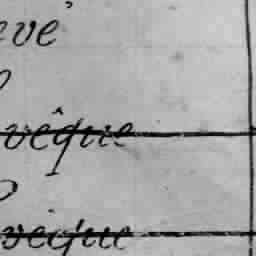 evé
vêque
vêque